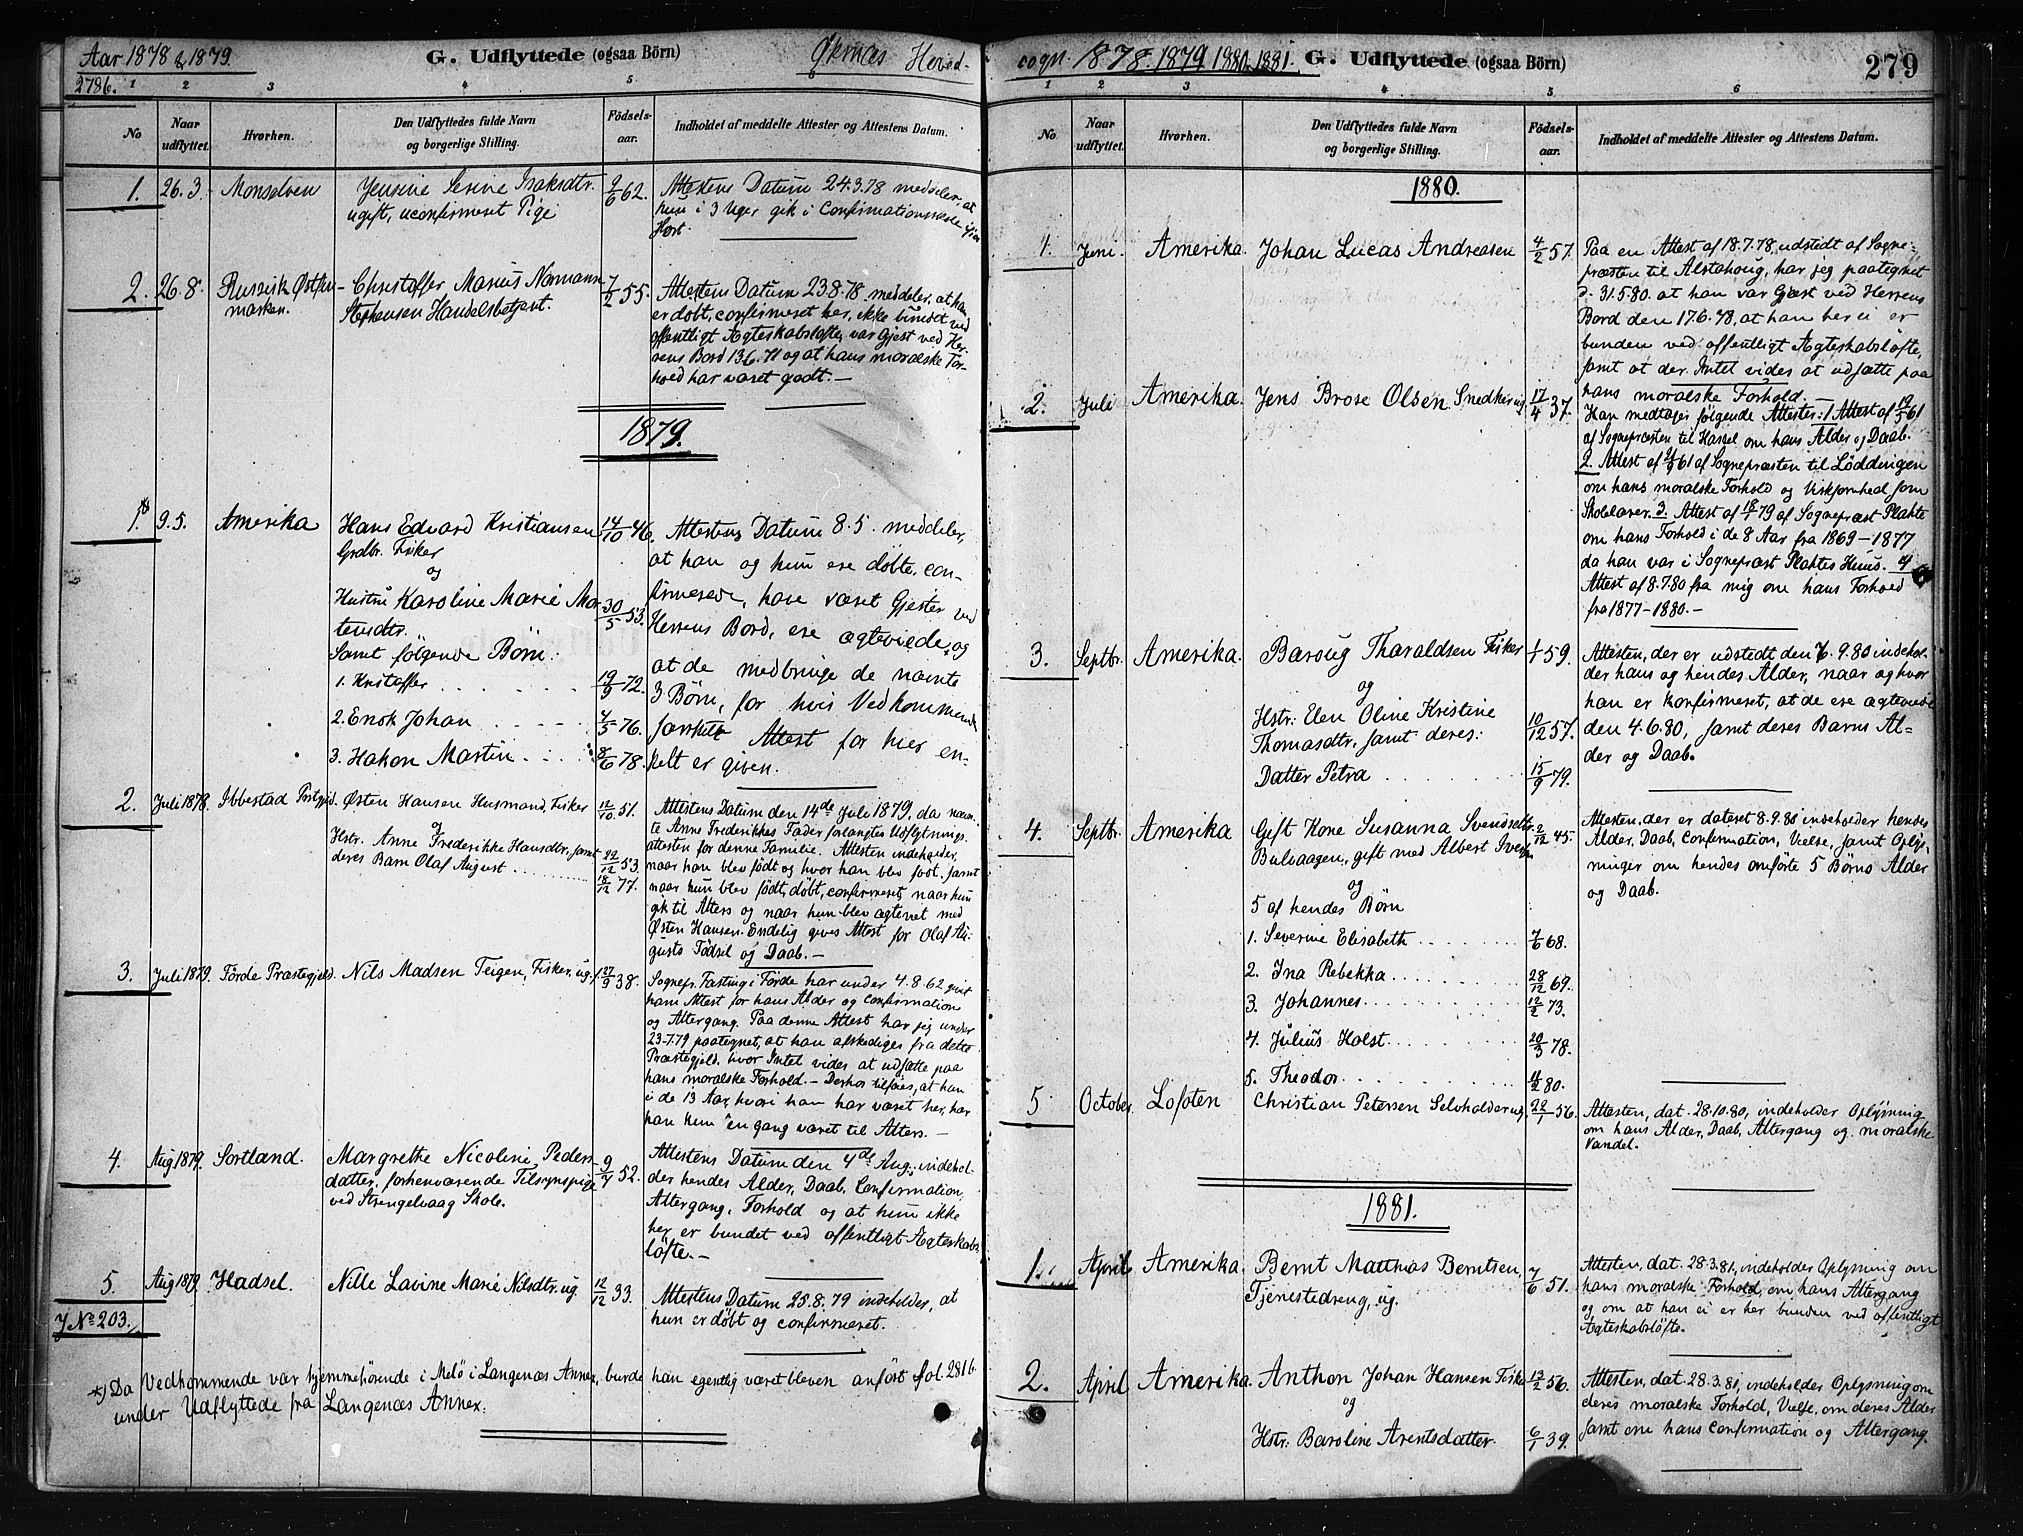 Aar 1878 & 1879.
278b.
G. Udflyttede (ogsaa Börn)
Øksnes Hoved-
1 2 3 4 5
No
Naar udflyttet.
Hvorhen.
Den Udflyttedes fulde Navn og borgerlige Stilling.
Födsels-aar.
Indholdet af meddelte Attester og Attestens Datum.
1. 26.3. Monselven Jensine Serine Isaksdtr. 9/6 62. Attestens Datum 24.3.78 meddeler, at
ugift, uconfirmeret Pige hun i 3 Uger gik i Confirmationsskole ifjor
Høst.
2. 26.8. Russisk Østfin- Christoffer Marius Normann 7/2 55. Attestens Datum 23.8.78 meddeler, at han
marken. Stephensen Handelsbetjent. er døbt, confirmeret her, ikke bundet ved
offentligt Ægteskabsløfte, var Gjest ved Her-
rens Bord 13.6.71 og at hans moralske For-
hold har været godt.—
1879.
1. 9.5. Amerika Hans Edvard Kristiansen 14/10 46. Attestens Datum 8.5. meddeler,
Grdbr. Fisker at han og hun ere døbte, con-
og
Hustru Karoline Marie Mor- 30/5 53. firmerede, have været Gjester ved
tensdtr. Herrens Bord, ere ægteviede, og
Samt følgende Børn: at de medbringe de nævnte
1. Kristoffer 19/9 72. 3 Børn, for hvis Vedkommende
2. Enok Johan 4/5 76. særskilt Attest for hver en-
3. Hakon Martin 8/6 78. kelt er given.
2. Juli 1878. Ibbestad Prstgjd. Østen Hansen Husmand, Fisker 12/10 51. Attestens Datum den 14de Juli 1879, da nævn-
og te Anne Frederikkes Fader forlangte Udflytnings-
Hstr. Anne Frederikke Hansdtr. samt 22/12 53. attesten for denne Familie. Attesten indeholder,
deres Barn Olaf August 18/12 77. naar han blev født og hvor han blev født, samt
naar hun blev født, døbt, confirmeret, naar hun
gik til Alters og naar hun blev ægteviet med
Østen Hansen. Endelig gives Attest for Olaf Au-
gusts Fødsel og Daab.—
3. Juli 1879. Førde Præstegjeld. Nils Madsen Teigen, Fisker, ug. 27/9 38. Sognepr. Fasting i Førde har under 4.8.62 givet
ham Attest for hans Alder og Confirmation
og Altergang. Paa denne Attest har jeg under
23.7.79 paategnet, at han afskediges fra dette
Præstegjeld, hvor Intet vides at udsætte paa
hans moralske Forhold.— Derhos tilføies, at han
i de 13 Aar, hvori han har været her, har
han kun en gang været til Alters.—
4. Aug 1879. Sortland. Margrethe Nicoline Peders- 9/7 52. Attestens Datum den 4de Aug., indehol-
datter, forhenværende Tilsynspige der hendes Alder, Daab, Confirmation,
ved Strengelvaag Skole. Altergang, Forhold og at hun ikke
her er bundet ved offentligt Ægteskabs-
løfte.—
5. Aug 1879. Hadsel. Nille Lavine Marie Nilsdtr. ug. 12/12 33. Attestens Datum 25.8.79 indeholder, at
hun er døbt og confirmeret.
J No 203.
*) Da Vedkommende var hjemmehørende i Melö i Langenæs Annex, burde han egentlig været bleven anført Fol. 281 b.
under Udflyttede fra Langenæs Annex.
sogn. 1878. 1879 1880. 1881. G. Udflyttede (ogsaa Börn) 279
1 2 3 4 5 6
No
Naar udflyttet.
Hvorhen.
Den Udflyttedes fulde Navn og borgerlige Stilling.
Födsels-aar.
Indholdet af meddelte Attester og Attestens Datum.
1880.
1. Juni. Amerika. Johan Lucas Andreasen 4/2 57. Paa en Attest af 18.7.78, udstedt af Sogne-
præsten til Alstahoug, har jeg paategnet
d. 31.5.80 at han var Gjæst ved Herrens
Bord den 17.6.78, at han her ei er
bunden ved offentligt Ægteskabsløfte,
samt at der Intet vides at udsætte paa
hans moralske Forhold.
2. Juli Amerika. Jens Brose Olsen Snedker ug. 17/4 37. Han medtager følgende Attester: 1 Attest af 19/5 61
af Sognepræsten til Hassel om hans Alder og Daab.
2. Attest af 2/9 61 af Sognepræsten til Lødingen
om hans moralske Forhold og Virksomhed som
Skolelærer. 3. Attest af 18/1 79 af Sognepræst Plahte
om hans Forhold i de 8 Aar fra 1869–1877
da han var i Sognepræst Plahtes Huus. 4
Attest af 8.7.80 fra mig om hans Forhold
fra 1877–1880.—
3. Septbr. Amerika. Baroug Tharaldsen Fisker 1/1 59. Attesten, der er udstedt den 7.9.80 indehol-
og der hans og hendes Alder, naar og hvor
Hstr. Elen Oline Kristine 10/12 57. han er konfirmeret, at de ere ægteviede
Thomasdtr. samt deres: den 4.6.80, samt deres Barns Al-
Datter Petra 15/9 79. der og Daab.
4. Septbr. Amerika Gift Kone Susanna Svendsdtr. 2/12 45. Attesten, der er dateret 8.9.80 indeholder hendes
Bulvaagen, gift med Albert Alder, Daab, Confirmation, Vielse, samt Oplys-
og ninger om hendes omførte 5 Børns Alder
5 af hendes Børn og Daab.
1. Severine Elisabeth 7/6 68.
2. Ina Rebekka 28/12 69.
3. Johannes 12/2 73.
4. Julius Holst 20/3 78.
5. Theodor 11/2 80.
5. October Lofoten Christian Petersen Selvholder ug. 22/1 56. Attesten, dat. 28.10.80, indeholder Oplysning
om hans Alder, Daab, Altergang og moralske
Vandel.
1881.
1. April Amerika. Bernt Matthias Berntsen, 7/6 51. Attesten, dat. 28.3.81, indeholder Oplysning om
Tjenestedreng, ug. hans moralske Forhold, om hans Altergang
og om at han ei er her bunden ved offentligt
Ægteskabsløfte.
2. April Amerika. Anthon Johan Hansen Fisker 13/2 56. Attesten, dat. 28.3.81, indeholder Oplysning om
og deres moralske Forhold, Vielse, om deres Alder
Hstr. Baroline Arentsdatter. 6/1 39. samt om hans Confirmation og Altergang.